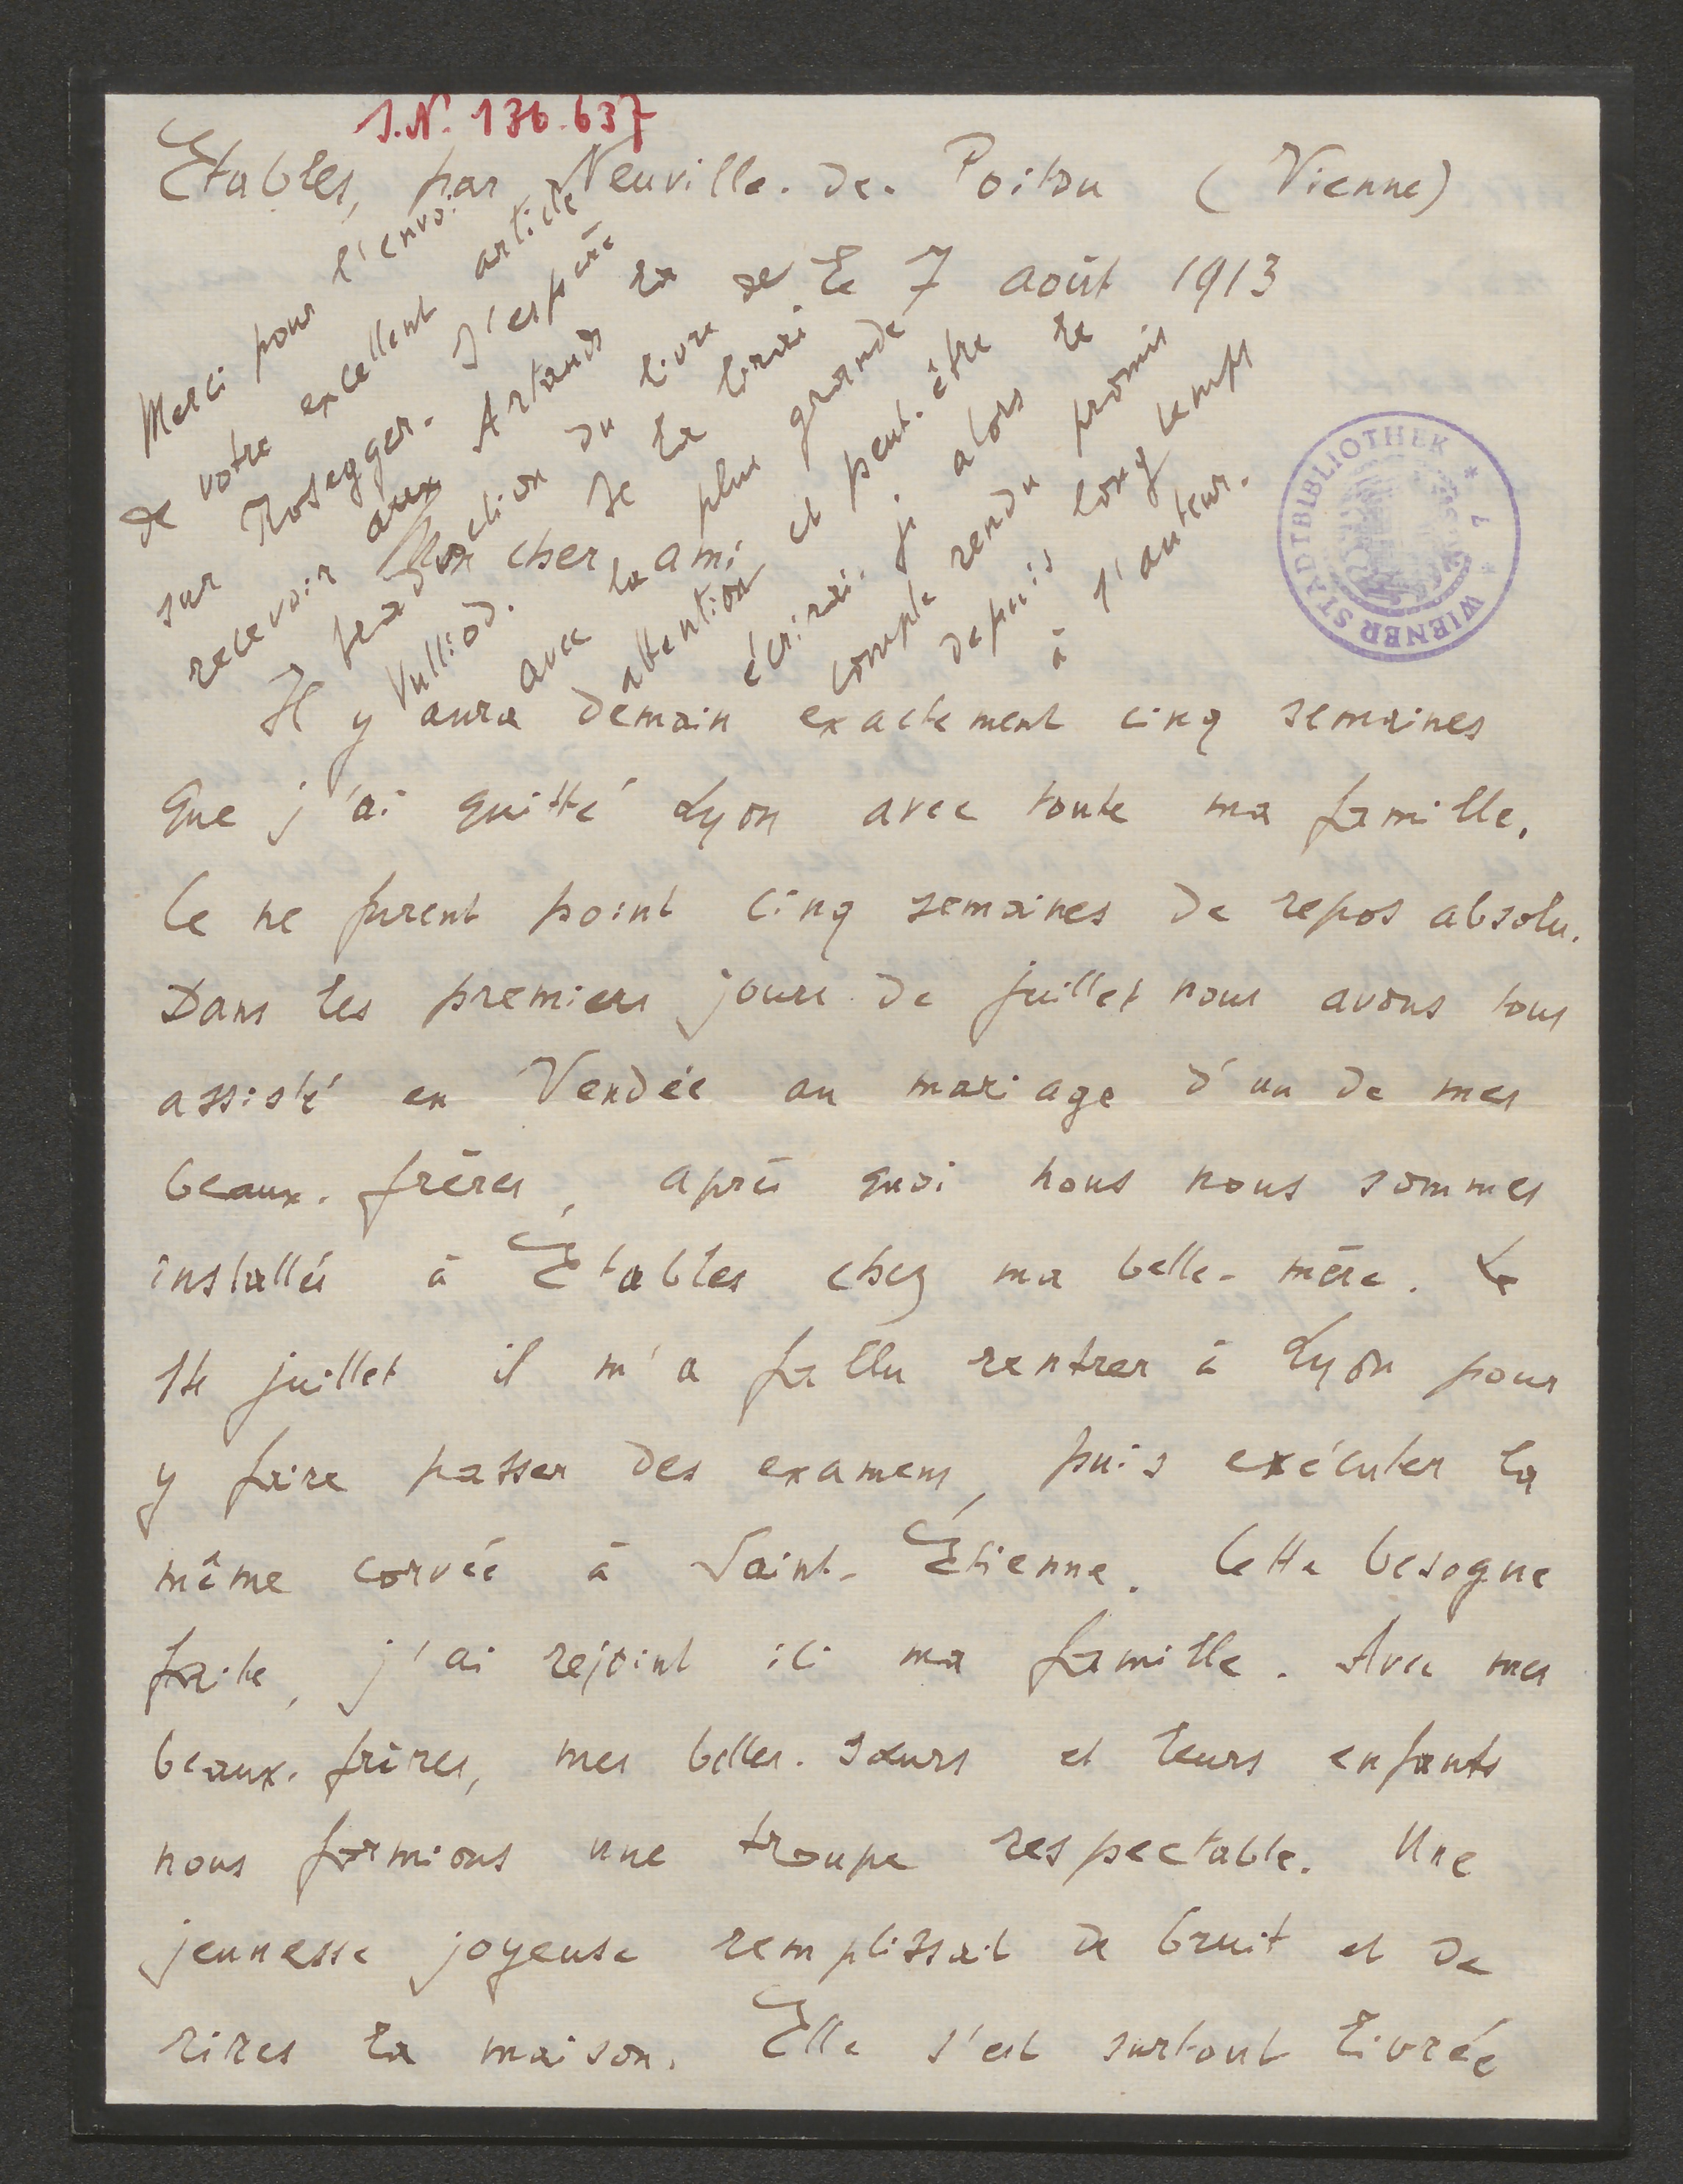 J.N. 136.637
Étables, par Neuville-de-Poitou (Vienne)
Le 7 août 1913
Merci pour l'envoi
de votre excellent article
sur Rosegger. J'espère
recevoir aux Artands la
traduction du livre de
Vulliod. Je la lirai
avec la plus grande
attention et peut-être
écrirai-je alors le
compte rendu promis
depuis longtemps
à l'auteur.
Mon cher ami
Il y aura demain exactement cinq semaines
que j'ai quitté Lyon avec toute ma famille.
Ce ne furent point cinq semaines de repos absolu.
Dans les premiers jours de juillet nous avons tous
assisté en Vendée au mariage d'un de mes
beaux-frères, après quoi nous nous sommes
installés à Étables chez ma belle-mère. Le
14 juillet il m'a fallu rentrer à Lyon pour
y faire passer des examens, puis exécuter la
même corvée à Saint-Étienne. Cette besogne
faite, j'ai rejoint ici ma famille. Avec mes
beaux-frères, mes belles-sœurs et leurs enfants
nous formions une troupe respectable. Une
jeunesse joyeuse remplissait de bruit et de
rires la maison. Elle s'est surtout livrée
WIENER STADTBIBLIOTHEK